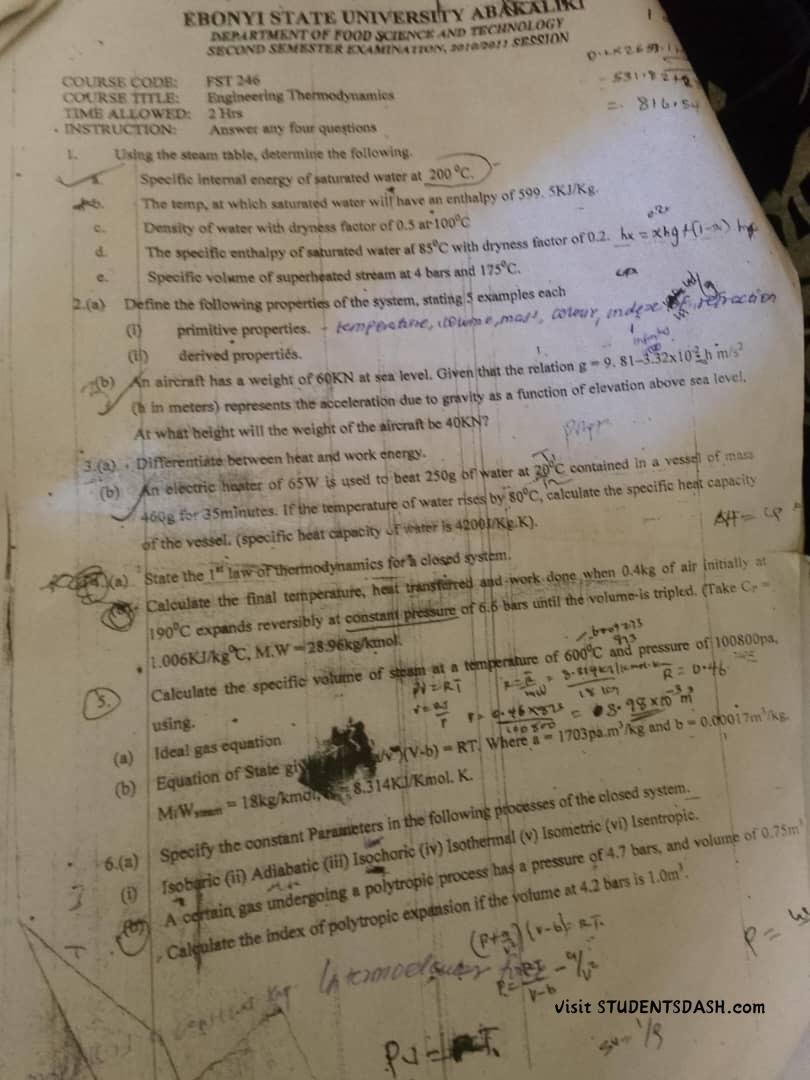 EBONYI STATE UNIVERSITY ABAKALIKI
DEPARTMENT OF FOOD SCIENCE AND TECHNOLOGY
SECOND SEMESTER EXAMINATION, 2010/2011 SESSION
COURSE CODE: FST 246
COURSE TITLE: Engineering Thermodynamics
TIME ALLOWED: 2 Hrs
INSTRUCTION: Answer any four questions
= 816.54
1. Using the steam table, determine the following.
a. Specific internal energy of saturated water at 200 ⁰C.
b. The temp, at which saturated water will have an enthalpy of 599. 5KJ/Kg.
c. Density of water with dryness factor of 0.5 at 100⁰C
d. The specific enthalpy of saturated water at 85⁰C with dryness factor of 0.2. hx = xhg + (1-x) hf
e. Specific volume of superheated stream at 4 bars and 175⁰C.
2.(a) Define the following properties of the system, stating 5 examples each
(i) primitive properties. - temperature, volume, mass, colour, index of refraction
(ii) derived properties.
(b) An aircraft has a weight of 60KN at sea level. Given that the relation g = 9. 81–3.32x10⁻² h m/s²
(h in meters) represents the acceleration due to gravity as a function of elevation above sea level,
At what height will the weight of the aircraft be 40KN?
3.(a) Differentiate between heat and work energy.
(b) An electric heater of 65W is used to heat 250g of water at 20⁰C contained in a vessel of mass
460g for 35minutes. If the temperature of water rises by 80⁰C, calculate the specific heat capacity
of the vessel. (specific heat capacity of water is 4200J/Kg.K).
(a) State the 1st law of thermodynamics for a closed system.
Calculate the final temperature, heat transferred and work done when 0.4kg of air initially at
190⁰C expands reversibly at constant pressure of 6.6 bars until the volume is tripled. (Take Cp =
1.006KJ/kg⁰C, M.W = 28.96kg/kmol.
5. Calculate the specific volume of steam at a temperature of 600⁰C and pressure of 100800pa,
using.
PV = RT
R = 0.46
(a) Ideal gas equation
(b) Equation of State (V-b) = RT. Where a = 1703pa.m³/kg and b = 0.00017m³/kg.
M.W steam = 18kg/kmol, = 8.314KJ/Kmol. K.
6.(a) Specify the constant Parameters in the following processes of the closed system.
(i) Isobaric (ii) Adiabatic (iii) Isochoric (iv) Isothermal (v) Isometric (vi) Isentropic.
(b) A certain gas undergoing a polytropic process has a pressure of 4.7 bars, and volume of 0.75m³
Calculate the index of polytropic expansion if the volume at 4.2 bars is 1.0m³.
(P+a/v²)(v-b) = RT.
visit STUDENTSDASH.com